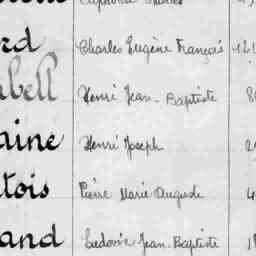 rd Charles Eugène François
bell Henri Jean-Baptiste
aine Henri Joseph
tois Pierre Marie Auguste
and Ludovic Jean Baptiste